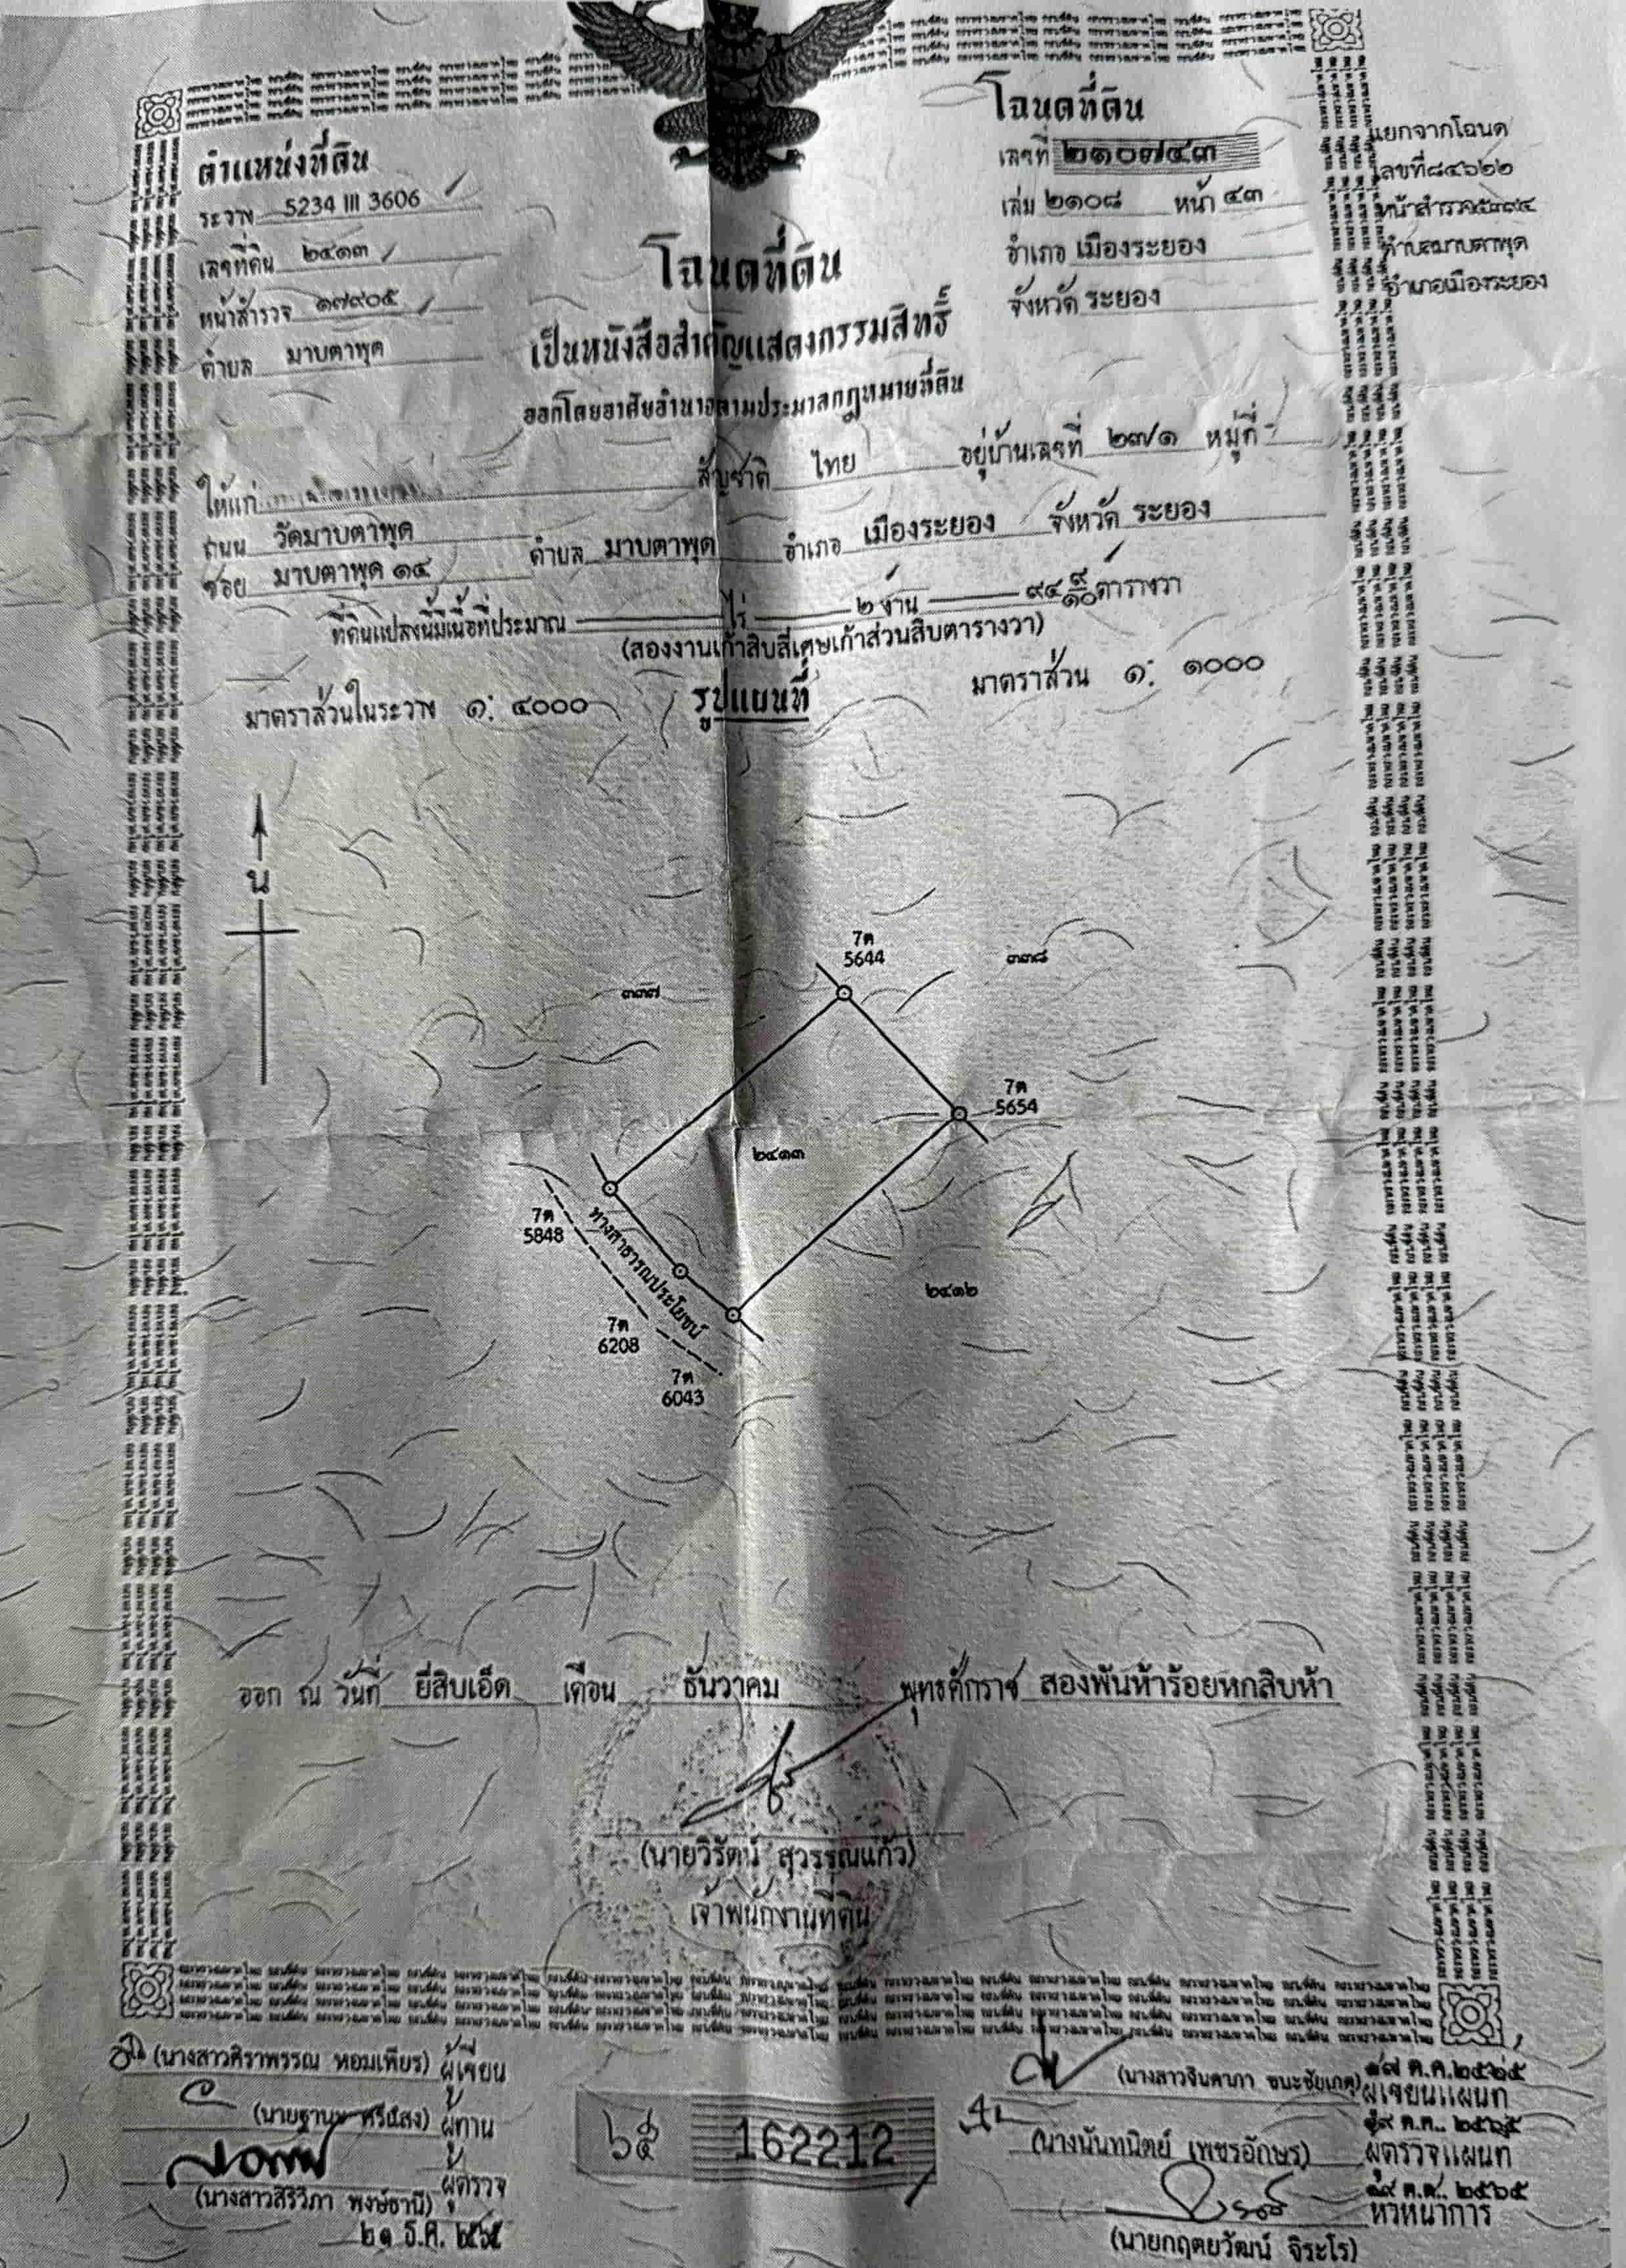 ตำแหน่งที่ดิน
ระวาง 5234 III 3606
เลขที่ดิน ๒๔๑๓
หน้าสำรวจ ๑๗๙๐๕
ตำบล มาบตาพุด
โฉนดที่ดิน
เลขที่ ๒๑๐๗๔๓
เล่ม ๒๑๐๘ หน้า ๔๓
อำเภอ เมืองระยอง
จังหวัด ระยอง
แยกจากโฉนด
เลขที่๘๔๖๒๒
หน้าสำรวจ๕๓๙๔
ตำบลมาบตาพุด
อำเภอเมืองระยอง
โฉนดที่ดิน
เป็นหนังสือสำคัญแสดงกรรมสิทธิ์
ออกโดยอาศัยอำนาจตามประมวลกฎหมายที่ดิน
ให้แก่ สัญชาติ ไทย อยู่บ้านเลขที่ ๒๗/๑ หมู่ที่ -
ถนน วัดมาบตาพุด
ซอย มาบตาพุด ๑๔ ตำบล มาบตาพุด อำเภอ เมืองระยอง จังหวัด ระยอง
ที่ดินแปลงนี้มีเนื้อที่ประมาณ ไร่ ๒ งาน ๙๔ ๙/๑๐ ตารางวา
(สองงานเก้าสิบสี่เศษเก้าส่วนสิบตารางวา)
มาตราส่วนในระวาง ๑: ๔๐๐๐ รูปแผนที่ มาตราส่วน ๑: ๑๐๐๐
น
7ต
5644
๓๓๗
๓๓๘
7ต
5654
๒๔๑๓
7ต
5848
ทางสาธารณประโยชน์
๒๔๑๒
7ต
6208
7ต
6043
ออก ณ วันที่ ยี่สิบเอ็ด เดือน ธันวาคม พุทธศักราช สองพันห้าร้อยหกสิบห้า
(นายวิรัตน์ สุวรรณแก้ว)
เจ้าพนักงานที่ดิน
(นางสาวศิราพรรณ หอมเทียร) ผู้เขียน
ผู้ทาน
ผู้ตรวจ
(นางสาวสิริวิภา พงษ์ธานี)
๒๑ ธ.ค. ๒๕๖๕
๖๕ 162212
๑๗ ต.ค.๒๕๖๕
ผู้เขียนแผนที่
๑๙ ต.ค.. ๒๕๖๕
(นางนันทนิตย์ เพชรอักษร) ผู้ตรวจแผนที่
๑๙ ต.ค.. ๒๕๖๕
หัวหน้าการ
(นายกฤตยวัฒน์ จิระโร)